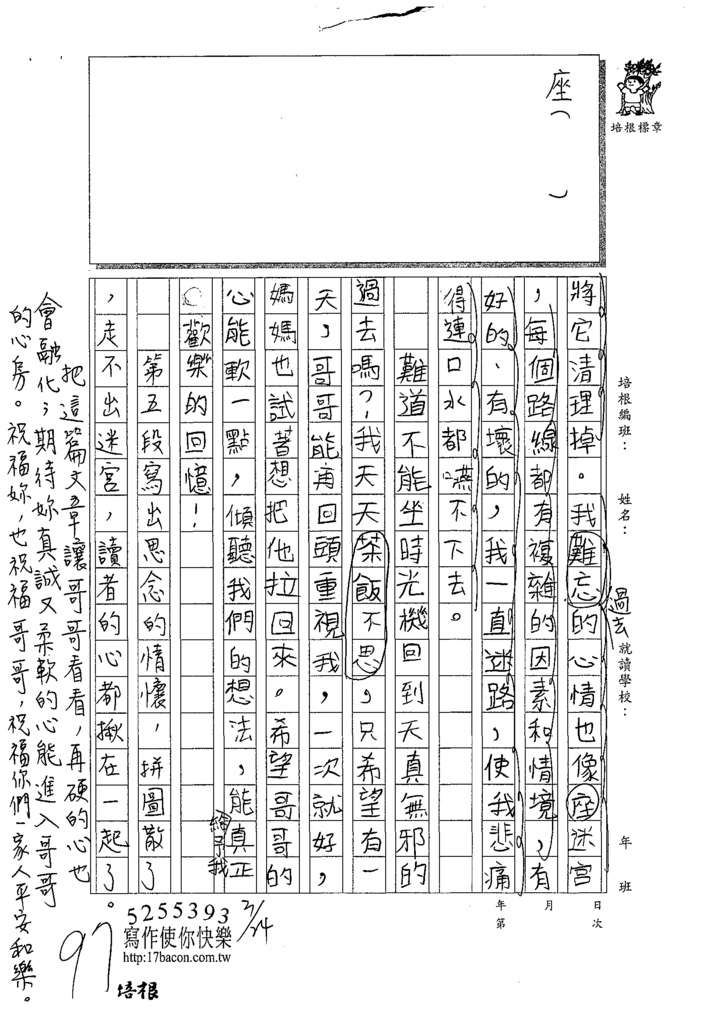 培根標章
座（　）
培根編班：　姓名：　就讀學校：　年　班
年　月　日
第　次
過去
將它清理掉。我難忘的心情也像座迷宮
，每個路線都有複雜的因素和情境，有
好的、有壞的，我一直迷路，使我悲痛
得連口水都嚥不下去。
難道不能坐時光機回到天真無邪的
過去嗎？我天天茶飯不思，只希望有一
天，哥哥能再回頭重視我，一次就好，
媽媽也試著想把他拉回來。希望哥哥的
心能軟一點，傾聽我們的想法，能真正
給予我
歡樂的回憶！
第五段寫出思念的情懷，拼圖散了
，走不出迷宮，讀者的心都揪在一起了。
把這篇文章讓哥哥看看，再硬的心也
會融化；期待妳真誠又柔軟的心能進入哥哥
的心房。祝福妳，也祝福哥哥，祝福你們一家人平安和樂。
97
5255393
2/24
寫作使你快樂
http:17bacon.com.tw
培根